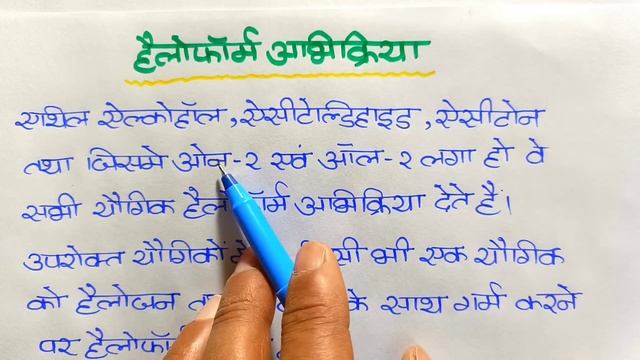 हैलोफॉर्म अभिक्रिया
एथिल ऐल्कोहॉल, ऐसीटेल्डिहाइड, ऐसीटोन
तथा जिसमे ओन-२ एवं ऑल-२ लगा हो वे
सभी यौगिक हैलोफॉर्म अभिक्रिया देते है।
उपरोक्त यौगिकों भी एक यौगिक
को हैलोजन के साथ गर्म करने
पर